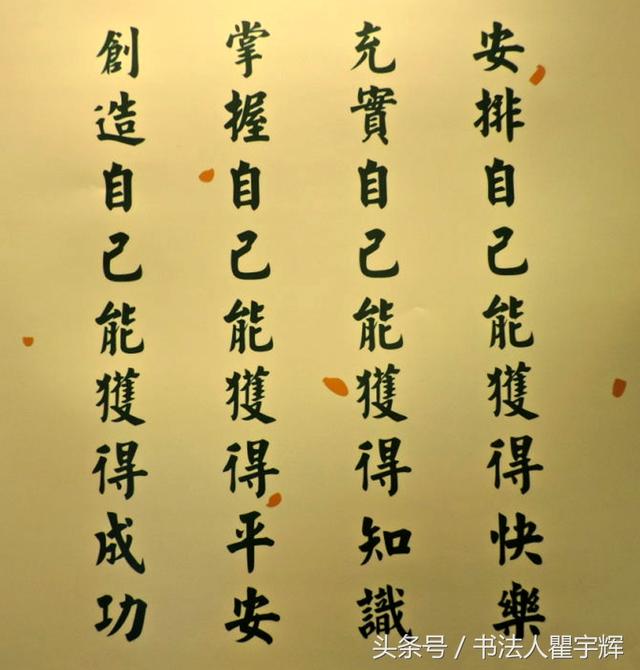 安排自己能獲得快樂
充實自己能獲得知識
掌握自己能獲得平安
創造自己能獲得成功
头条号 / 书法人瞿宇辉